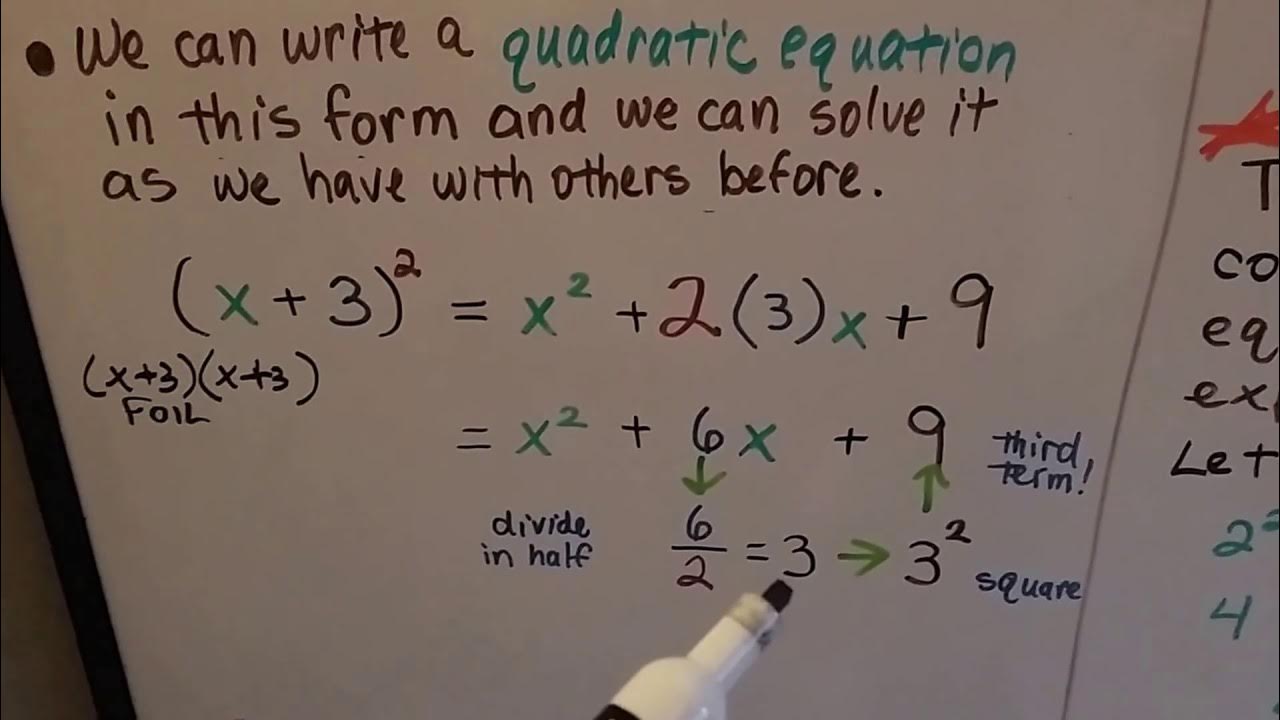 • We can write a quadratic equation
in this form and we can solve it
as we have with others before.
(x + 3)² = x² + 2(3)x + 9
(x+3)(x+3)
FOIL
= x² + 6x + 9 third term!
↓ ↑
divide in half 6/2 = 3 → 3² square
co
eq
Let
4